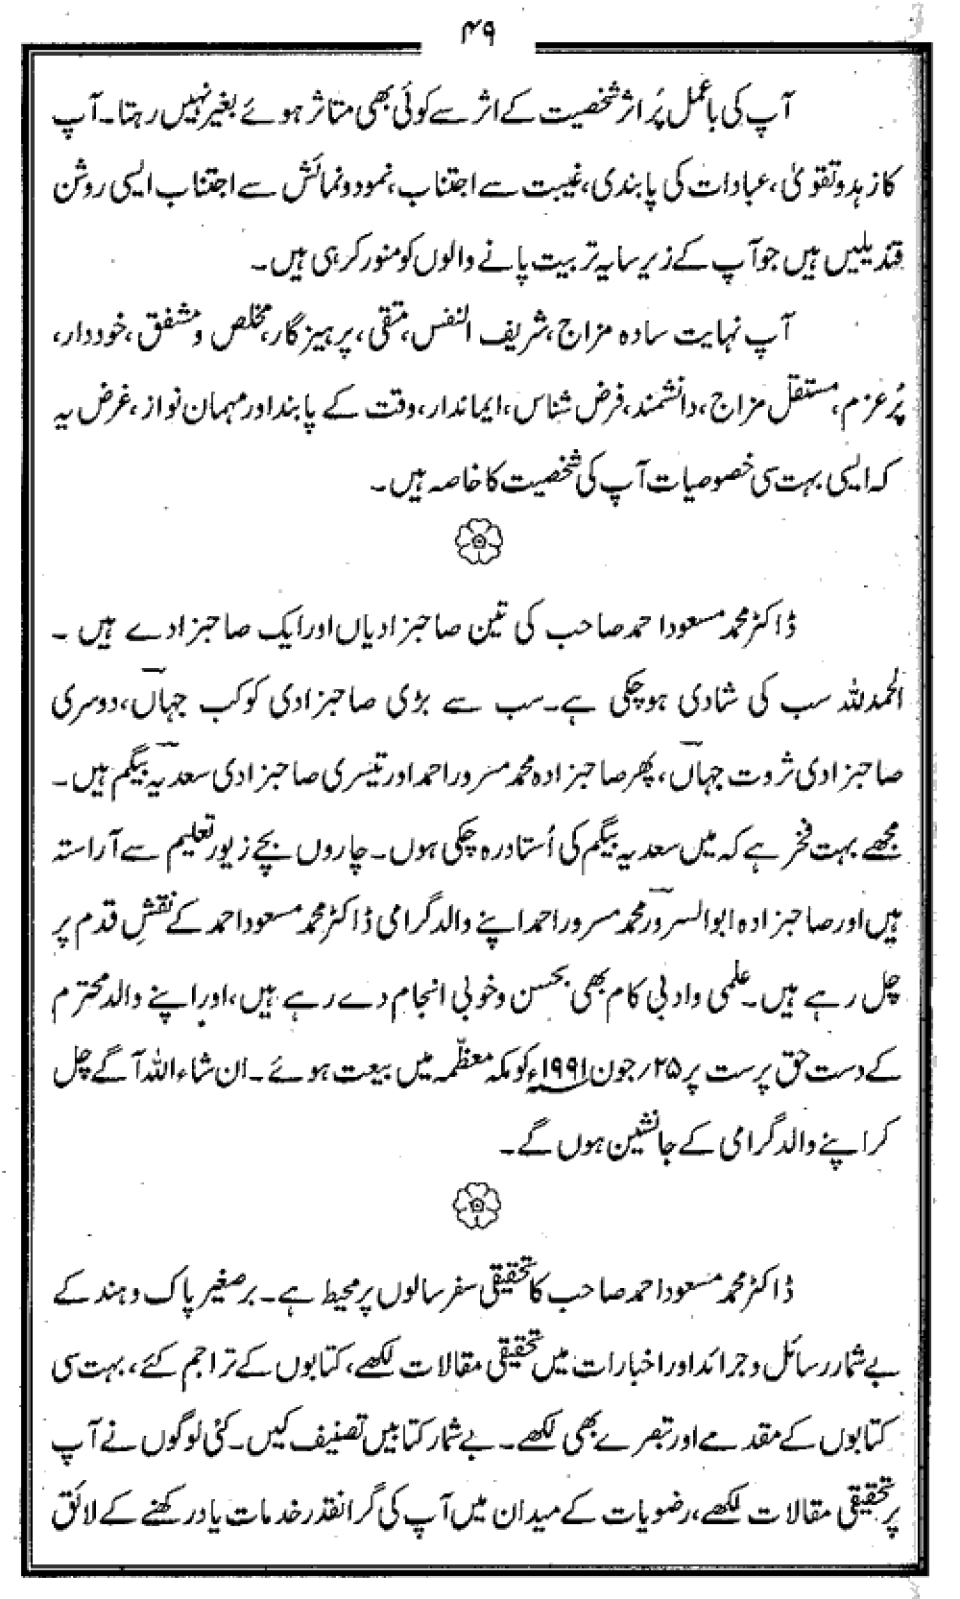 ۴۹
آپ کی باعمل پُر اثر شخصیت کے اثر سے کوئی بھی متاثر ہوئے بغیر نہیں رہتا۔ آپ
کا زہد و تقویٰ، عبادات کی پابندی، غیبت سے اجتناب، نمود و نمائش سے اجتناب ایسی روشن
قندیلیں ہیں جو آپ کے زیر سایہ تربیت پانے والوں کو منور کر رہی ہیں۔
آپ نہایت سادہ مزاج، شریف النفس، متقی، پرہیزگار، مخلص و مشفق، خوددار،
پُر عزم، مستقل مزاج، دانشمند، فرض شناس، ایماندار، وقت کے پابند اور مہمان نواز، غرض یہ
کہ ایسی بہت سی خصوصیات آپ کی شخصیت کا خاصہ ہیں۔
ڈاکٹر محمد مسعود احمد صاحب کی تین صاحبزادیاں اور ایک صاحبزادے ہیں۔
الحمدللہ سب کی شادی ہوچکی ہے۔ سب سے بڑی صاحبزادی کوکب جہاں، دوسری
صاحبزادی ثروت جہاں، پھر صاحبزادہ محمد مسرور احمد اور تیسری صاحبزادی سعدیہ بیگم ہیں۔
مجھے بہت فخر ہے کہ میں سعدیہ بیگم کی اُستاد رہ چکی ہوں۔ چاروں بچے زیور تعلیم سے آراستہ
ہیں اور صاحبزادہ ابوالسرور محمد مسرور احمد اپنے والد گرامی ڈاکٹر محمد مسعود احمد کے نقشِ قدم پر
چل رہے ہیں۔ علمی و ادبی کام بھی بحسن و خوبی انجام دے رہے ہیں، اور اپنے والد محترم
کے دست حق پرست پر ۲۵؍جون ۱۹۹۱ء کو مکہ معظّمہ میں بیعت ہوئے۔ ان شاء اللہ آگے چل
کر اپنے والد گرامی کے جانشین ہوں گے۔
ڈاکٹر محمد مسعود احمد صاحب کا تحقیقی سفر سالوں پر محیط ہے۔ برصغیر پاک و ہند کے
بے شمار رسائل و جرائد اور اخبارات میں تحقیقی مقالات لکھے، کتابوں کے تراجم کئے، بہت سی
کتابوں کے مقدمے اور تبصرے بھی لکھے۔ بے شمار کتابیں تصنیف کیں۔ کئی لوگوں نے آپ
پر تحقیقی مقالات لکھے، رضویات کے میدان میں آپ کی گرانقدر خدمات یاد رکھنے کے لائق